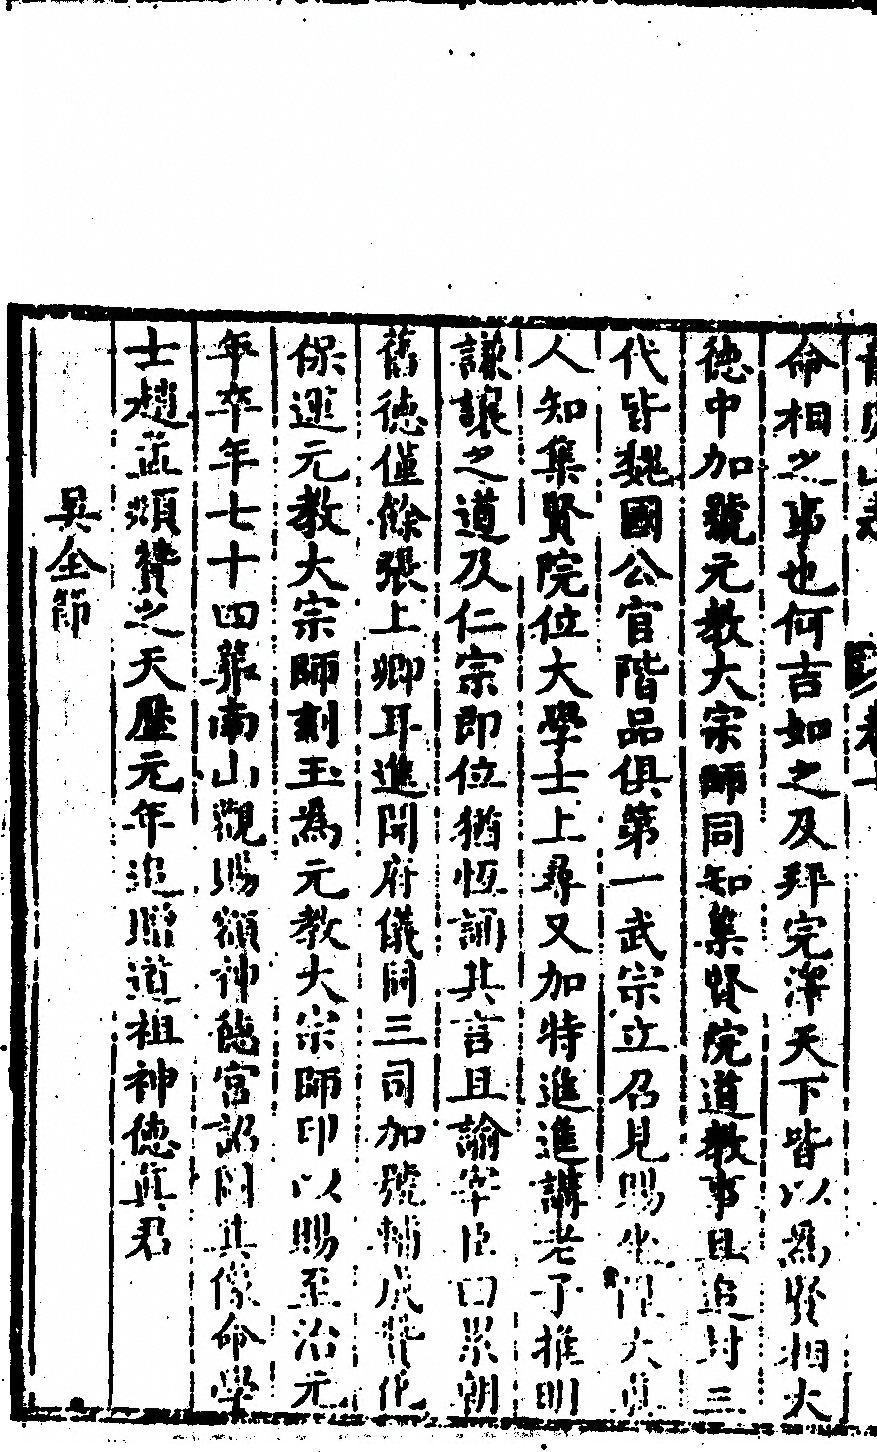 命相之事也何吉如之及拜完澤天下皆以爲賢相大
德中加號元教大宗師同知集賢院道教事且追封三
代皆魏國公官階品俱第一武宗立召見賜坐陞大真
人知集賢院位大學士上尋又加特進進講老子推明
謙讓之道及仁宗即位猶恆誦其言且諭宰臣曰累朝
舊德僅餘張上卿耳進開府儀同三司加號輔成贊化
保運元教大宗師刻玉爲元教大宗師印以賜至治元
年卒年七十四葬南山觀賜額神德宮詔圖其像命學
士趙孟頫贊之天歷元年追贈道祖神德真君
吳全節